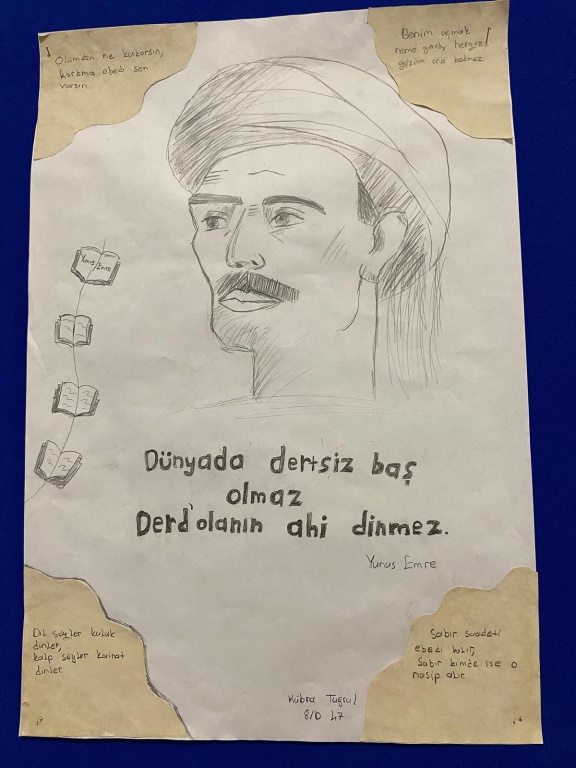 Ölümden ne korkarsın,
korkma ebedi sen
varsın.
Benim uçmak
neme gerek, hergiz
gözüm ona bakmaz.
Yunus Emre
Dünyada dertsiz baş
olmaz
Derd'olanın ahi dinmez.
Yunus Emre
Dil söyler kulak
dinler,
kalp söyler kainat
dinler.
Sabır saadeti
ebedi kalır,
Sabır kimde ise o
nasip alır.
Kübra Tuğrul
8/D 47